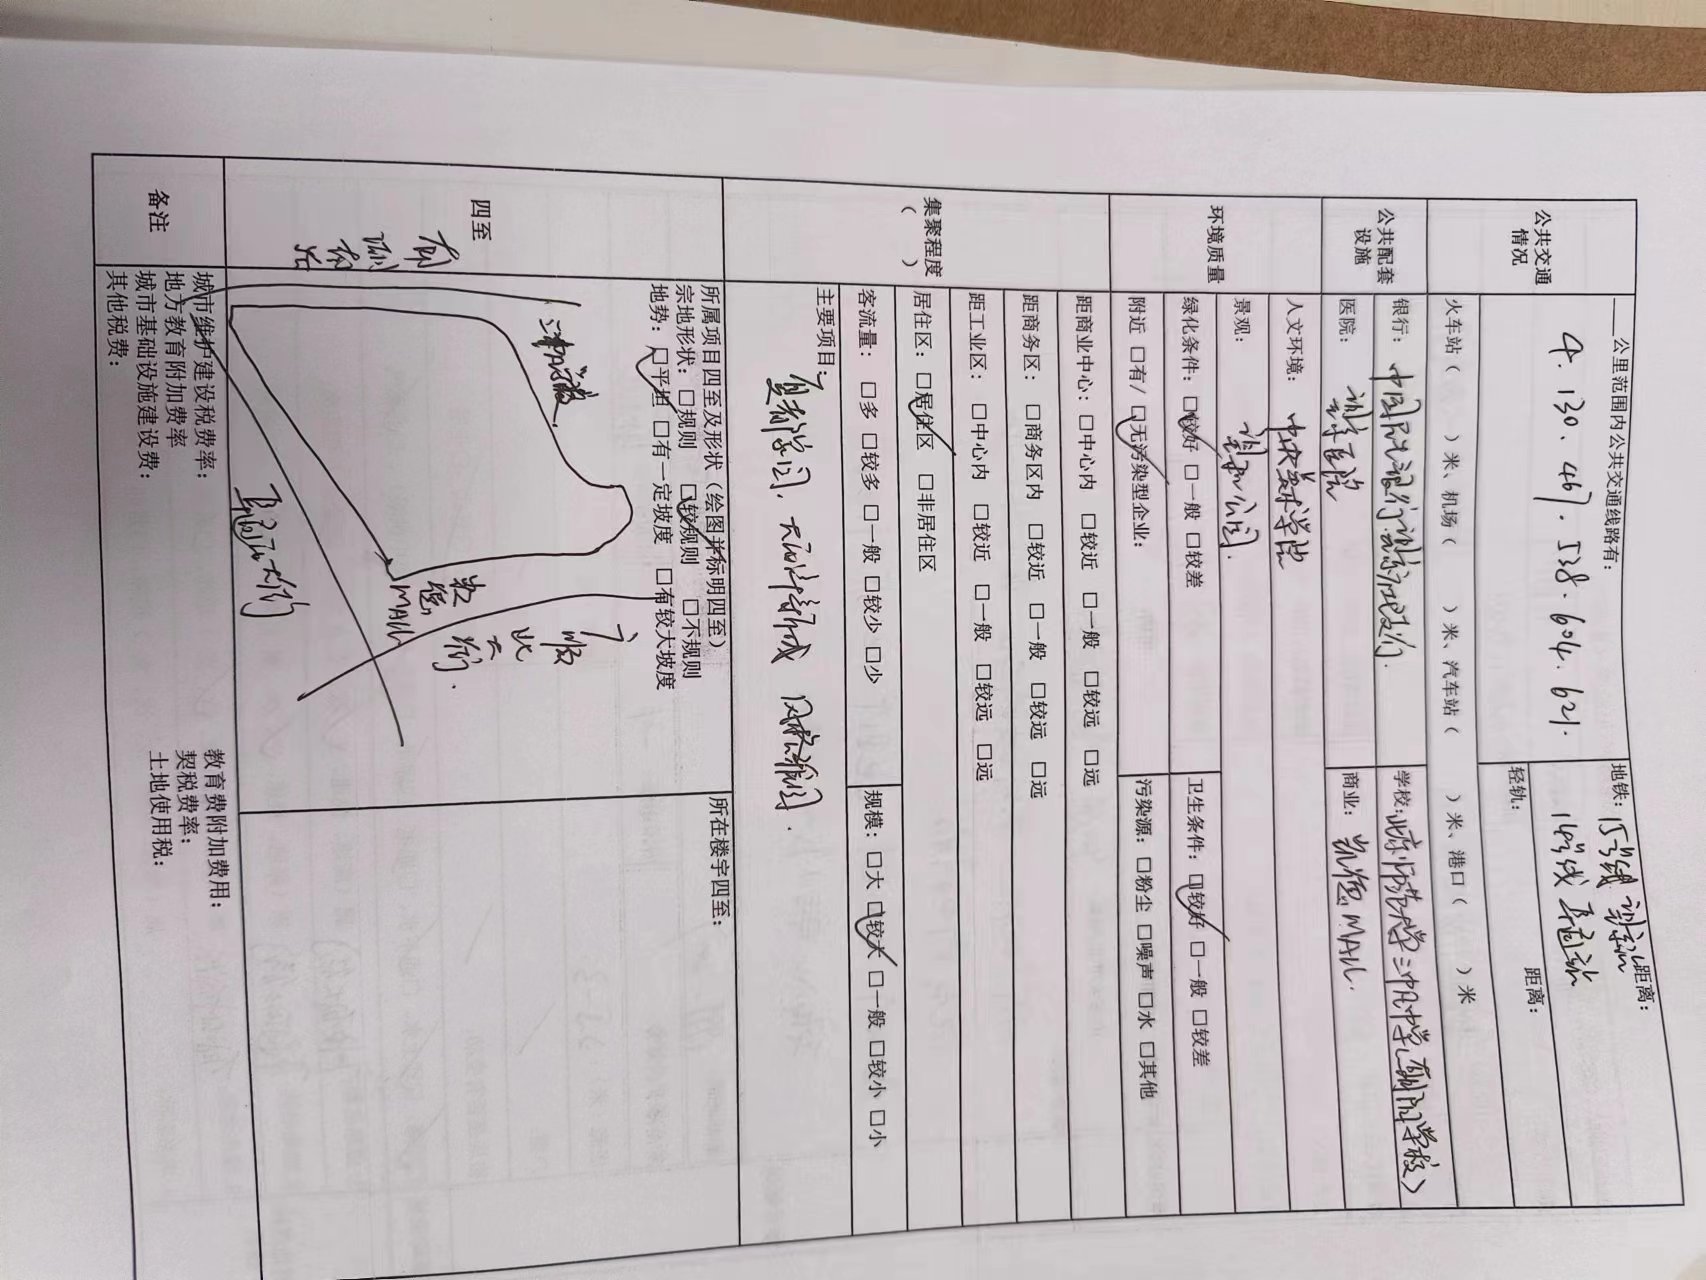 公共交通情况
____公里范围内公共交通线路有：
4. 130. 467. 538. 604. 621.
地铁：15号线 望京站 距离：
14号线 阜通站
轻轨： 距离：
火车站（ ）米、机场（ ）米、汽车站（ ）米、港口（ ）米
公共配套设施
银行：中国民生银行望京支行.
学校：北京师范大学三帆中学
医院：望京医院
商业：凯德MALL.
环境质量
人文环境：中央美术学院
景观：公园.
绿化条件：□较好 □一般 □较差
卫生条件：□较好 □一般 □较差
附近 □有/ □无污染型企业：
污染源：□粉尘 □噪声 □水 □其他
集聚程度（ ）
距商业中心：□中心内 □较近 □一般 □较远 □远
距商务区：□商务区内 □较近 □一般 □较远 □远
距工业区：□中心内 □较近 □一般 □较远 □远
居住区：□居住区 □非居住区
客流量：□多 □较多 □一般 □较少 □少
规模：□大 □较大 □一般 □较小 □小
主要项目：
夏都家园. 大西洋新城
四至
所属项目四至及形状（绘图并标明四至）
所在楼宇四至：
宗地形状：□规则 □较规则 □不规则
地势：□平坦 □有一定坡度 □有较大坡度
南湖
广顺北大街.
凯德MALL
阜通大街
备注
城市维护建设税费率：
教育费附加费用：
地方教育附加费率
契税费率：
城市基础设施建设费：
土地使用税：
其他税费：